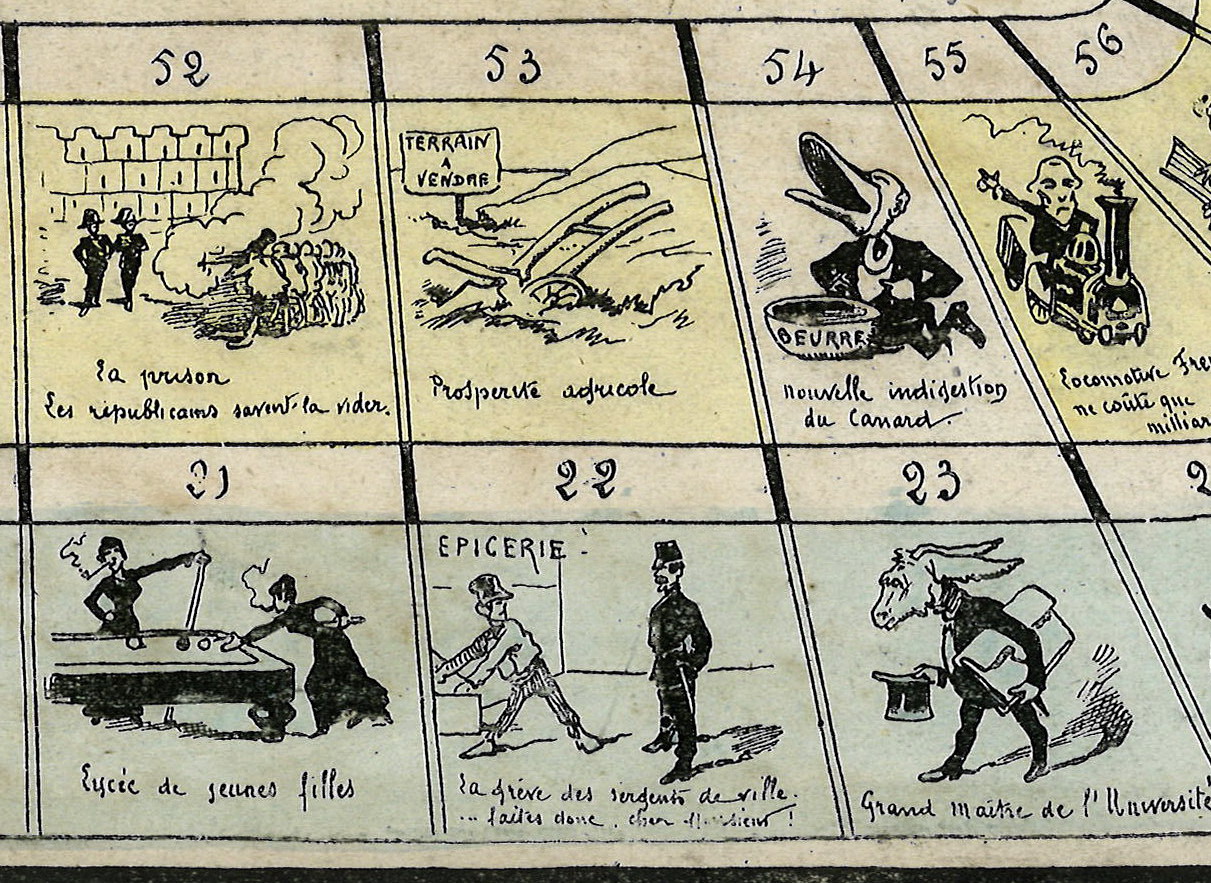 52 53 54 55 56
TERRAIN
A
VENDRE
BEURRE
La prison
Les républicains savent la vider.
Prosperité agricole
nouvelle indigestion
du Canard.
Locomotive
ne coûte que
21 22 23
EPICERIE
Lycée de jeunes filles
La grève des sergents de ville.
... faites donc, cher Monsieur !
Grand Maître de l'Université